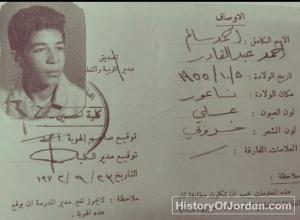 الاوصاف
الاسم الكامل: احمد سالم
احمد عبدالقادر
تاريخ الولادة: ١٩٥٥/١٠/٥
مكان الولادة: ناعور
لون العيون: عسلي
لون الشعر: خروبي
العلامات الفارقة:
ملاحظة:
تصديق
مدير التربية والتعليم
كلية الحسين
توقيع صاحب الهوية احمد
توقيع مدير الكلية
التاريخ ١٩٧٢/٩/٢٣
ملاحظة: لايجوز لغير مدير المدرسة ان يوقع
هذه الهوية.
HistoryOfJordan.com